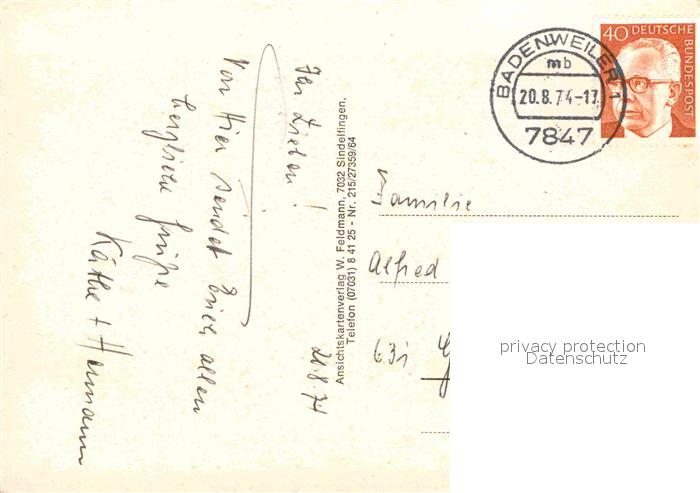 40 DEUTSCHE
BUNDESPOST
BADENWEILER 1
mb
20.8.74-17
7847
Ihr Lieben!
20.8.74
Von Hier sendet Euch allen
herzliche Grüße
Käthe + Hermann
Ansichtskartenverlag W. Feldmann, 7032 Sindelfingen,
Telefon (07031) 8 41 25 - Nr. 215/27359/64
Familie
Alfred
631
privacy protection
Datenschutz